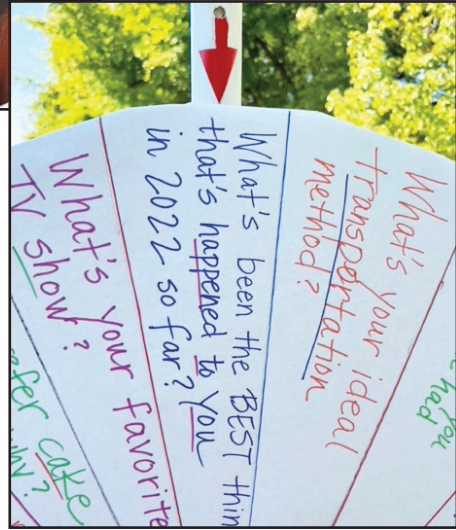 What's your favorite
TV show?
What's been the BEST thin
that's happened to you
in 2022 so far?
What's your ideal
transportation
method?
fer cake
why?
you
had